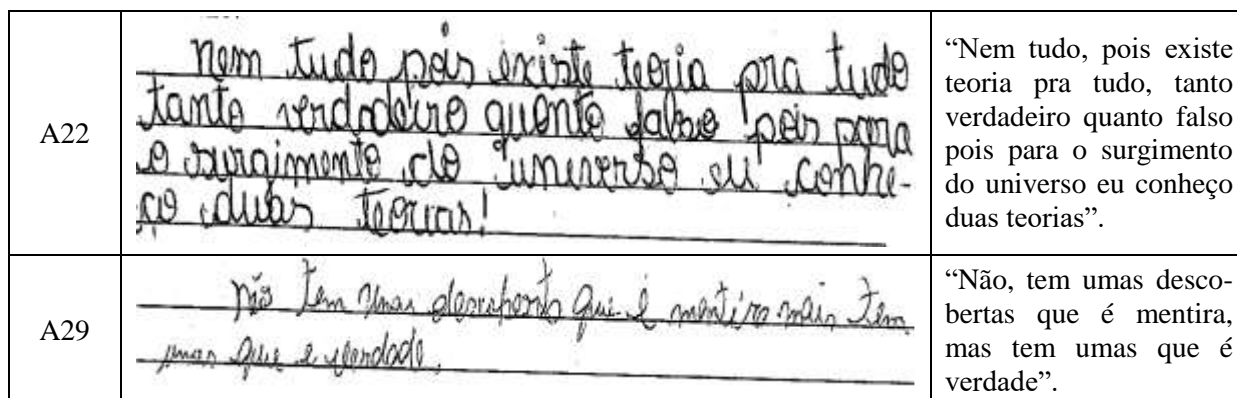 A22
Nem tudo pois existe teoria pra tudo
tanto verdadeiro quanto falso pois para
o surgimento do universo eu conhe-
ço duas teorias!
“Nem tudo, pois existe
teoria pra tudo, tanto
verdadeiro quanto falso
pois para o surgimento
do universo eu conheço
duas teorias”.
A29
não tem umas descoberta que é mentira mais tem
umas que e verdade.
“Não, tem umas desco-
bertas que é mentira,
mas tem umas que é
verdade”.